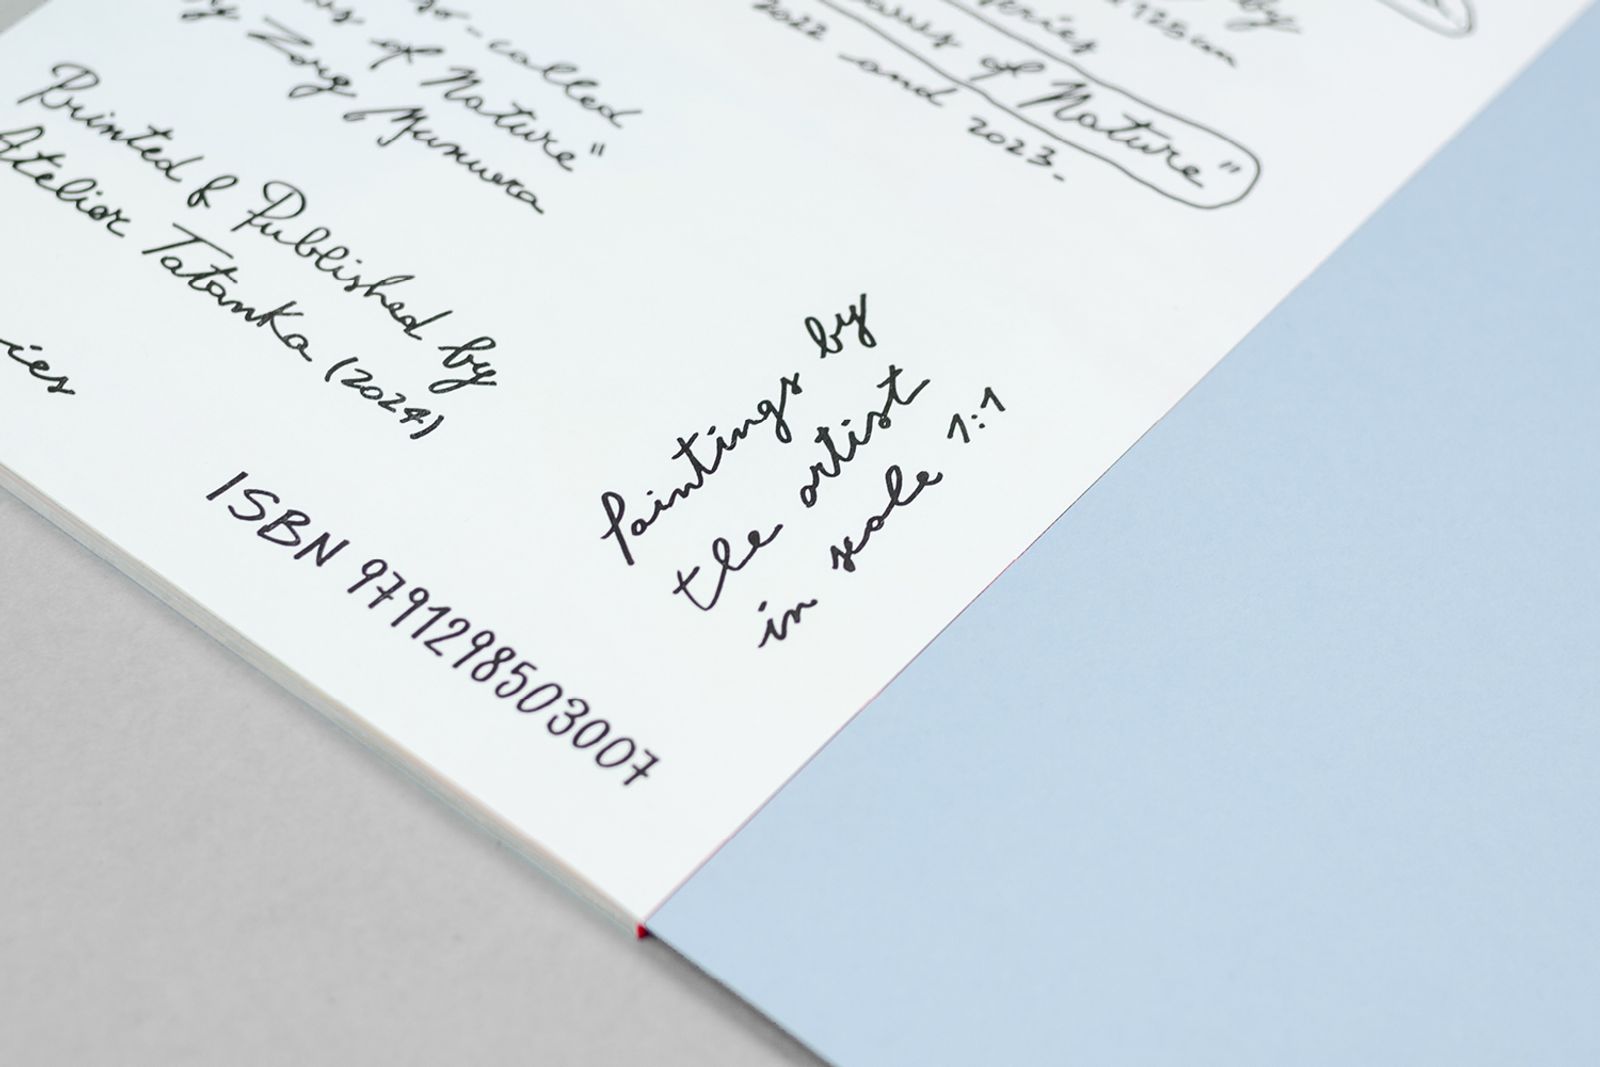 so-called
of Nature"
by Zorg Munuera
Printed & Published by
Atelier Tatanka (2024)
ies
ISBN 9791298503007
by
125 cm
of Nature"
2022 and 2023.
Paintings by
the artist
in scale 1:1